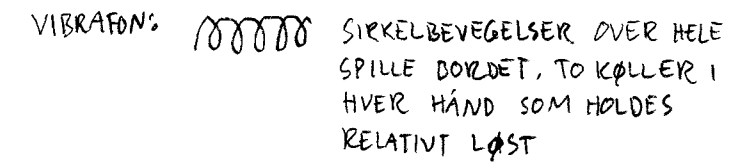 VIBRAFON: SIRKELBEVEGELSER OVER HELE
SPILLE BORDET, TO KØLLER I
HVER HÅND SOM HOLDES
RELATIVT LØST